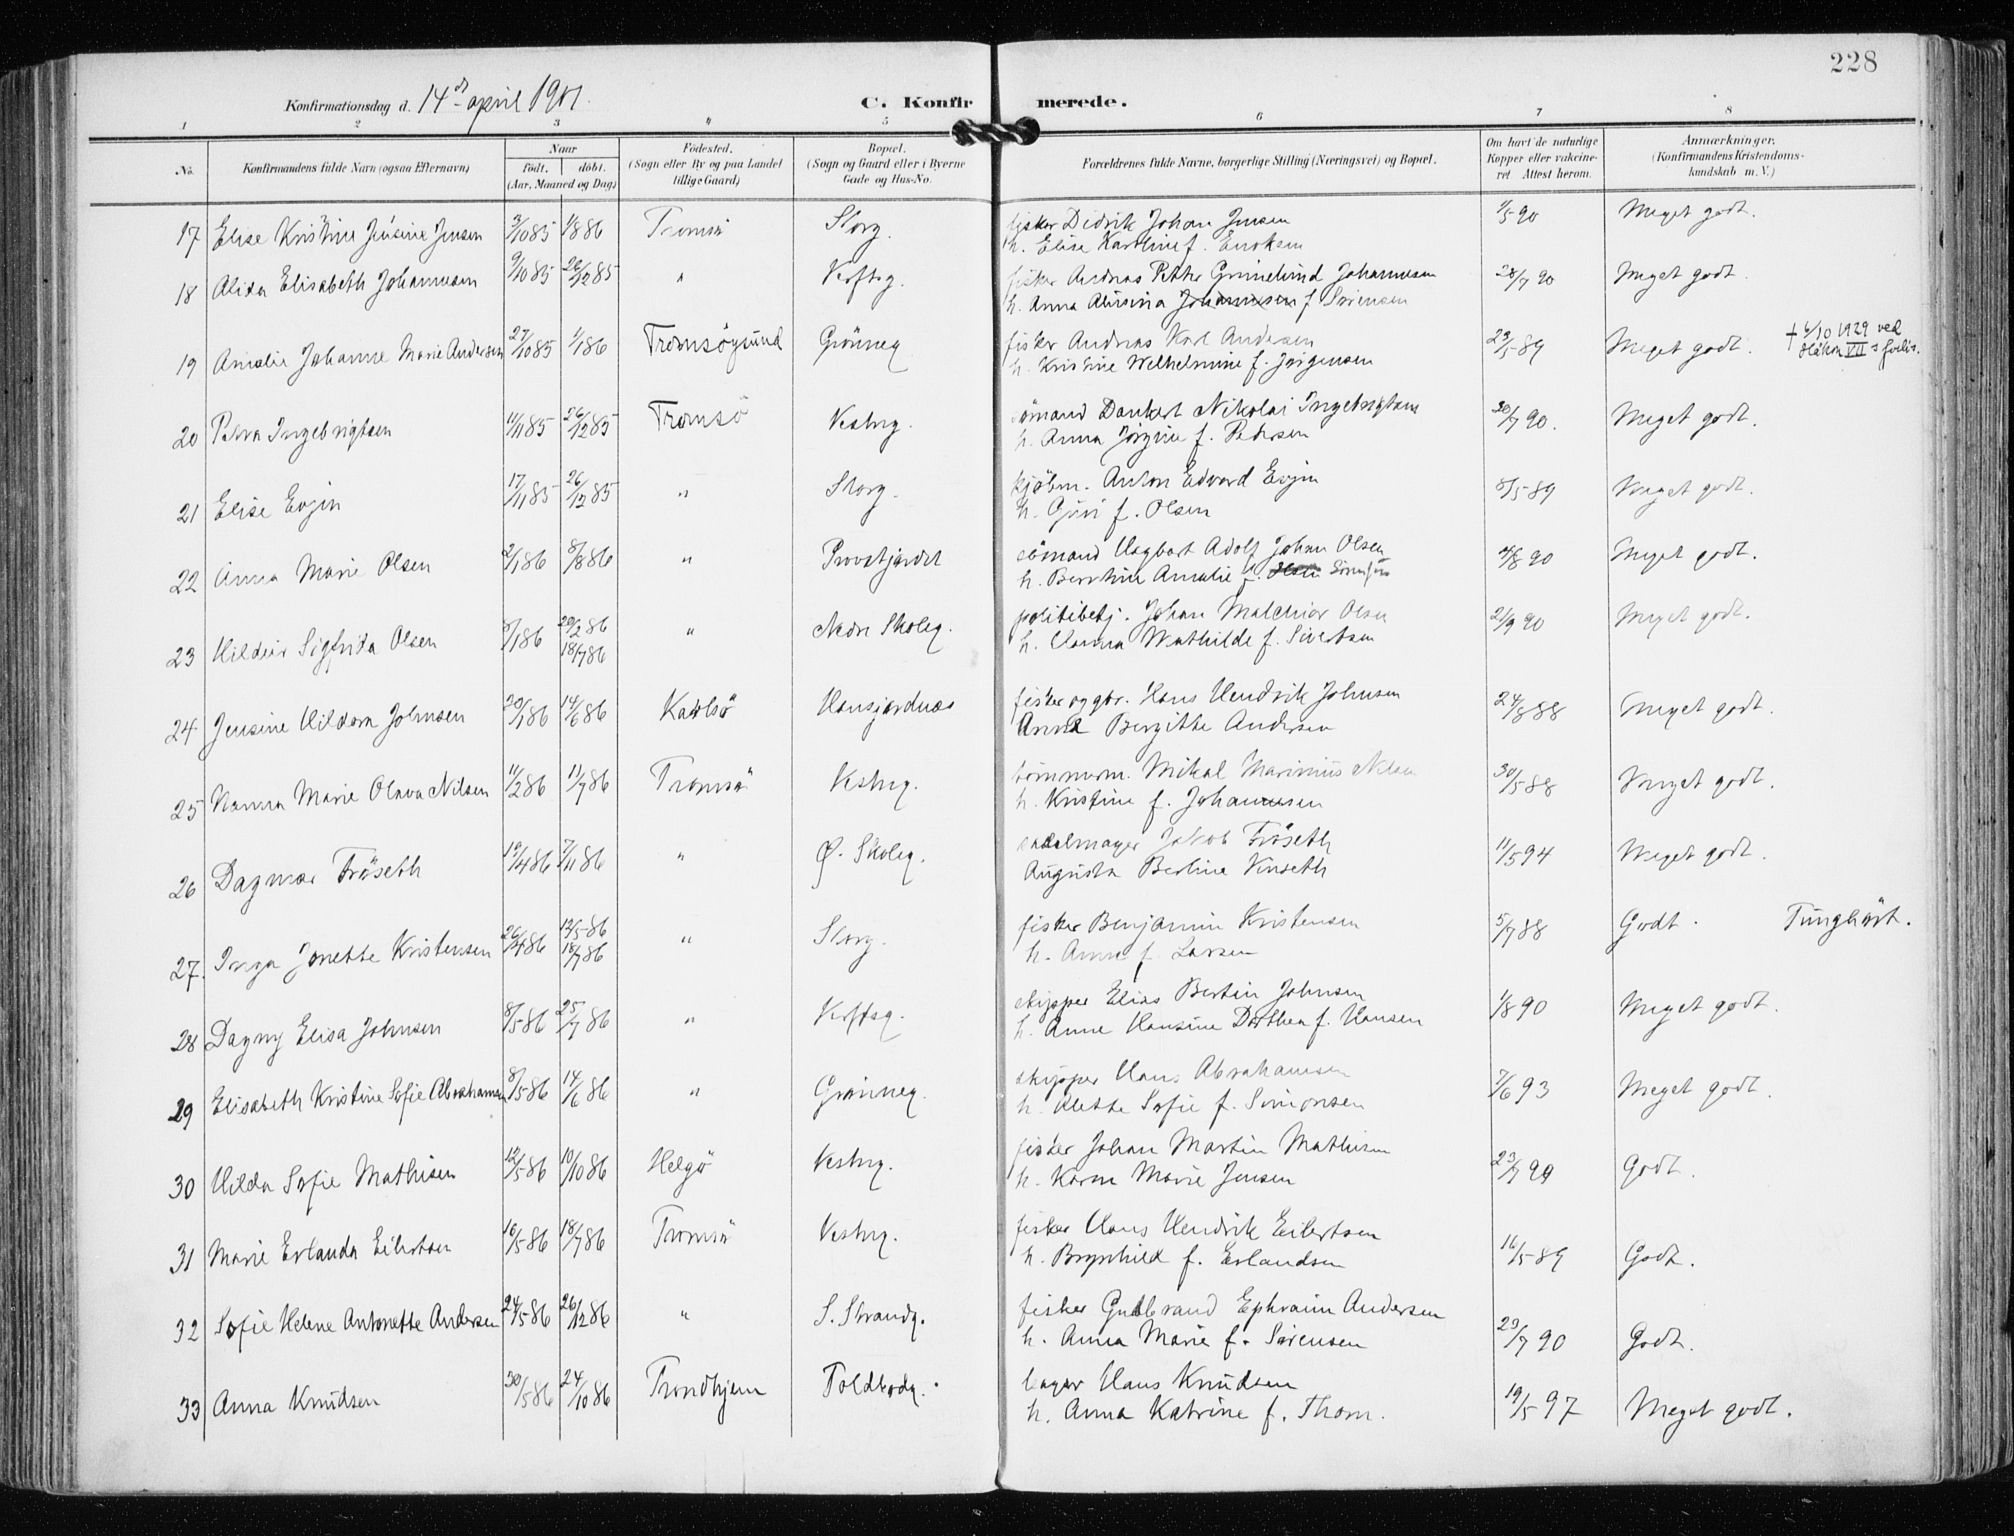 228
Konfirmationsdag d. 14de april 1901.
C. Konfirmerede.
1 2 3 4 5 6 7 8
No. Konfirmandens fulde Navn (ogsaa Efternavn) Naar født. døbt. (Aar, Maaned og Dag) Fødested. (Sogn eller By og paa Landet tillige Gaard) Bopæl. (Sogn og Gaard eller i Byerne Gade og Hus-No. Forældrenes fulde Navne, borgerlige Stilling (Næringsvei) og Bopæl. Om havt de naturlige Kopper eller vakcineret Attest herom. Anmærkninger. (Konfirmandens Kristendomskundskab m. V.)
17 Elise Kristine Jensine Jensen 3/10 85 1/8 86 Tromsö Storg. fisker Didrik Johan Jensen 1/5 90 Meget godt.
h. Elise Karoline f.
18 Alida Elisabeth Johannesen 9/10 85 26/12 85 " Verftsg. fisker Andreas Petter Johannesen 28/7 90 Meget godt.
h. Anna f. Sörensen
19 Amalie Johanne Marie Andersen 27/10 85 1/1 86 Tromsöysund Grönneg fisker Andreas Karl Andersen 23/5 89 Meget godt. † 6/10 1929 ved
h. Kristine Wilhelmine f. Jörgensen Håkon VII s
20 Petra Ingebrigtsen 11/11 85 26/12 85 Tromsö Vestreg. sömand Dankert Nikolai Ingebrigtsen 30/7 90. Meget godt.
h. Anna Jörgine f. Pedersen
21 Elise Evjen 17/11 85 26/12 85 " Storg. kjöbm. Anton Edvard Evjen 8/5 89 Meget godt.
h. Guri f. Olsen
22 Anna Marie Olsen 2/1 86 8/8 86 " Provstjordet sömand Hagbart Adolf Johan Olsen 4/8 90 Meget godt.
h. Berntine Amalie f.
23 Hildur Sigfrida Olsen 8/1 86 20/2 86 18/7 86 " Nedre Skoleg. politibetj. Johan Melchior Olsen 21/9 90 Meget godt.
h. Hanna Mathilde f. Sivertsen
24 Jensine Hildora Johnsen 20/1 86 14/6 86 Karlsö Hansjordnæs fisker og gbr. Hans Hendrik Johnsen 24/8 88 Meget godt.
Anna Bergitte Andersen
25 Hanna Marie Olava Nilsen 11/2 86 11/7 86 Tromsö Vestreg. tömmerm. Mikal Marinius Nilsen 30/5 88 Meget godt.
h. Kristine f. Johannesen
26 Dagmar Fröseth 19/4 86 7/11 86 " Ø. Skoleg. sadelmager Jakob Fröseth 11/5 94 Meget godt.
Augusta Berline Vinseth
27. Inga Jonette Kristensen 26/4 86 12/5 86 18/7 86 " Storg. fisker Benjamin Kristensen 5/7 88 Godt. Tunghört.
h. Anne f. Larsen
28 Dagny Elisa Johnsen 8/5 86 25/7 86 " Verftsg. skipper Elias Bertin Johnsen 1/8 90 Meget godt.
h. Anne Hansine Dorthea f. Hansen
29 Elisabeth Kristine Sofie Abrahamsen 8/5 86 14/6 86 " Grönneg. skipper Hans Abrahamsen 7/6 93 Meget godt.
h. Alette Sofie f. Simonsen
30 Hilda Sofie Mathisen 12/5 86 10/10 86 Helgö Vestreg. fisker Johan Martin Mathisen 23/7 99 Godt.
h. Karen Marie Jensen
31 Marie Erlanda Eilertsen 16/5 86 18/7 86 Tromsö Vestreg. fisker Hans Hendrik Eilertsen 16/5 89 Godt.
h. Brynhild f. Erlandsen
32 Sofie Helene Antonette Andersen 24/5 86 26/12 86 " S. Strandg. fisker Gudbrand Ephraim Andersen 29/7 90 Godt.
h. Anna Marie f. Sörensen
33 Anna Knudsen 30/5 86 24/10 86 Trondhjem Toldbodg. bager Hans Knudsen 19/5 97 Meget godt.
h. Anna Katrine f. Thom.